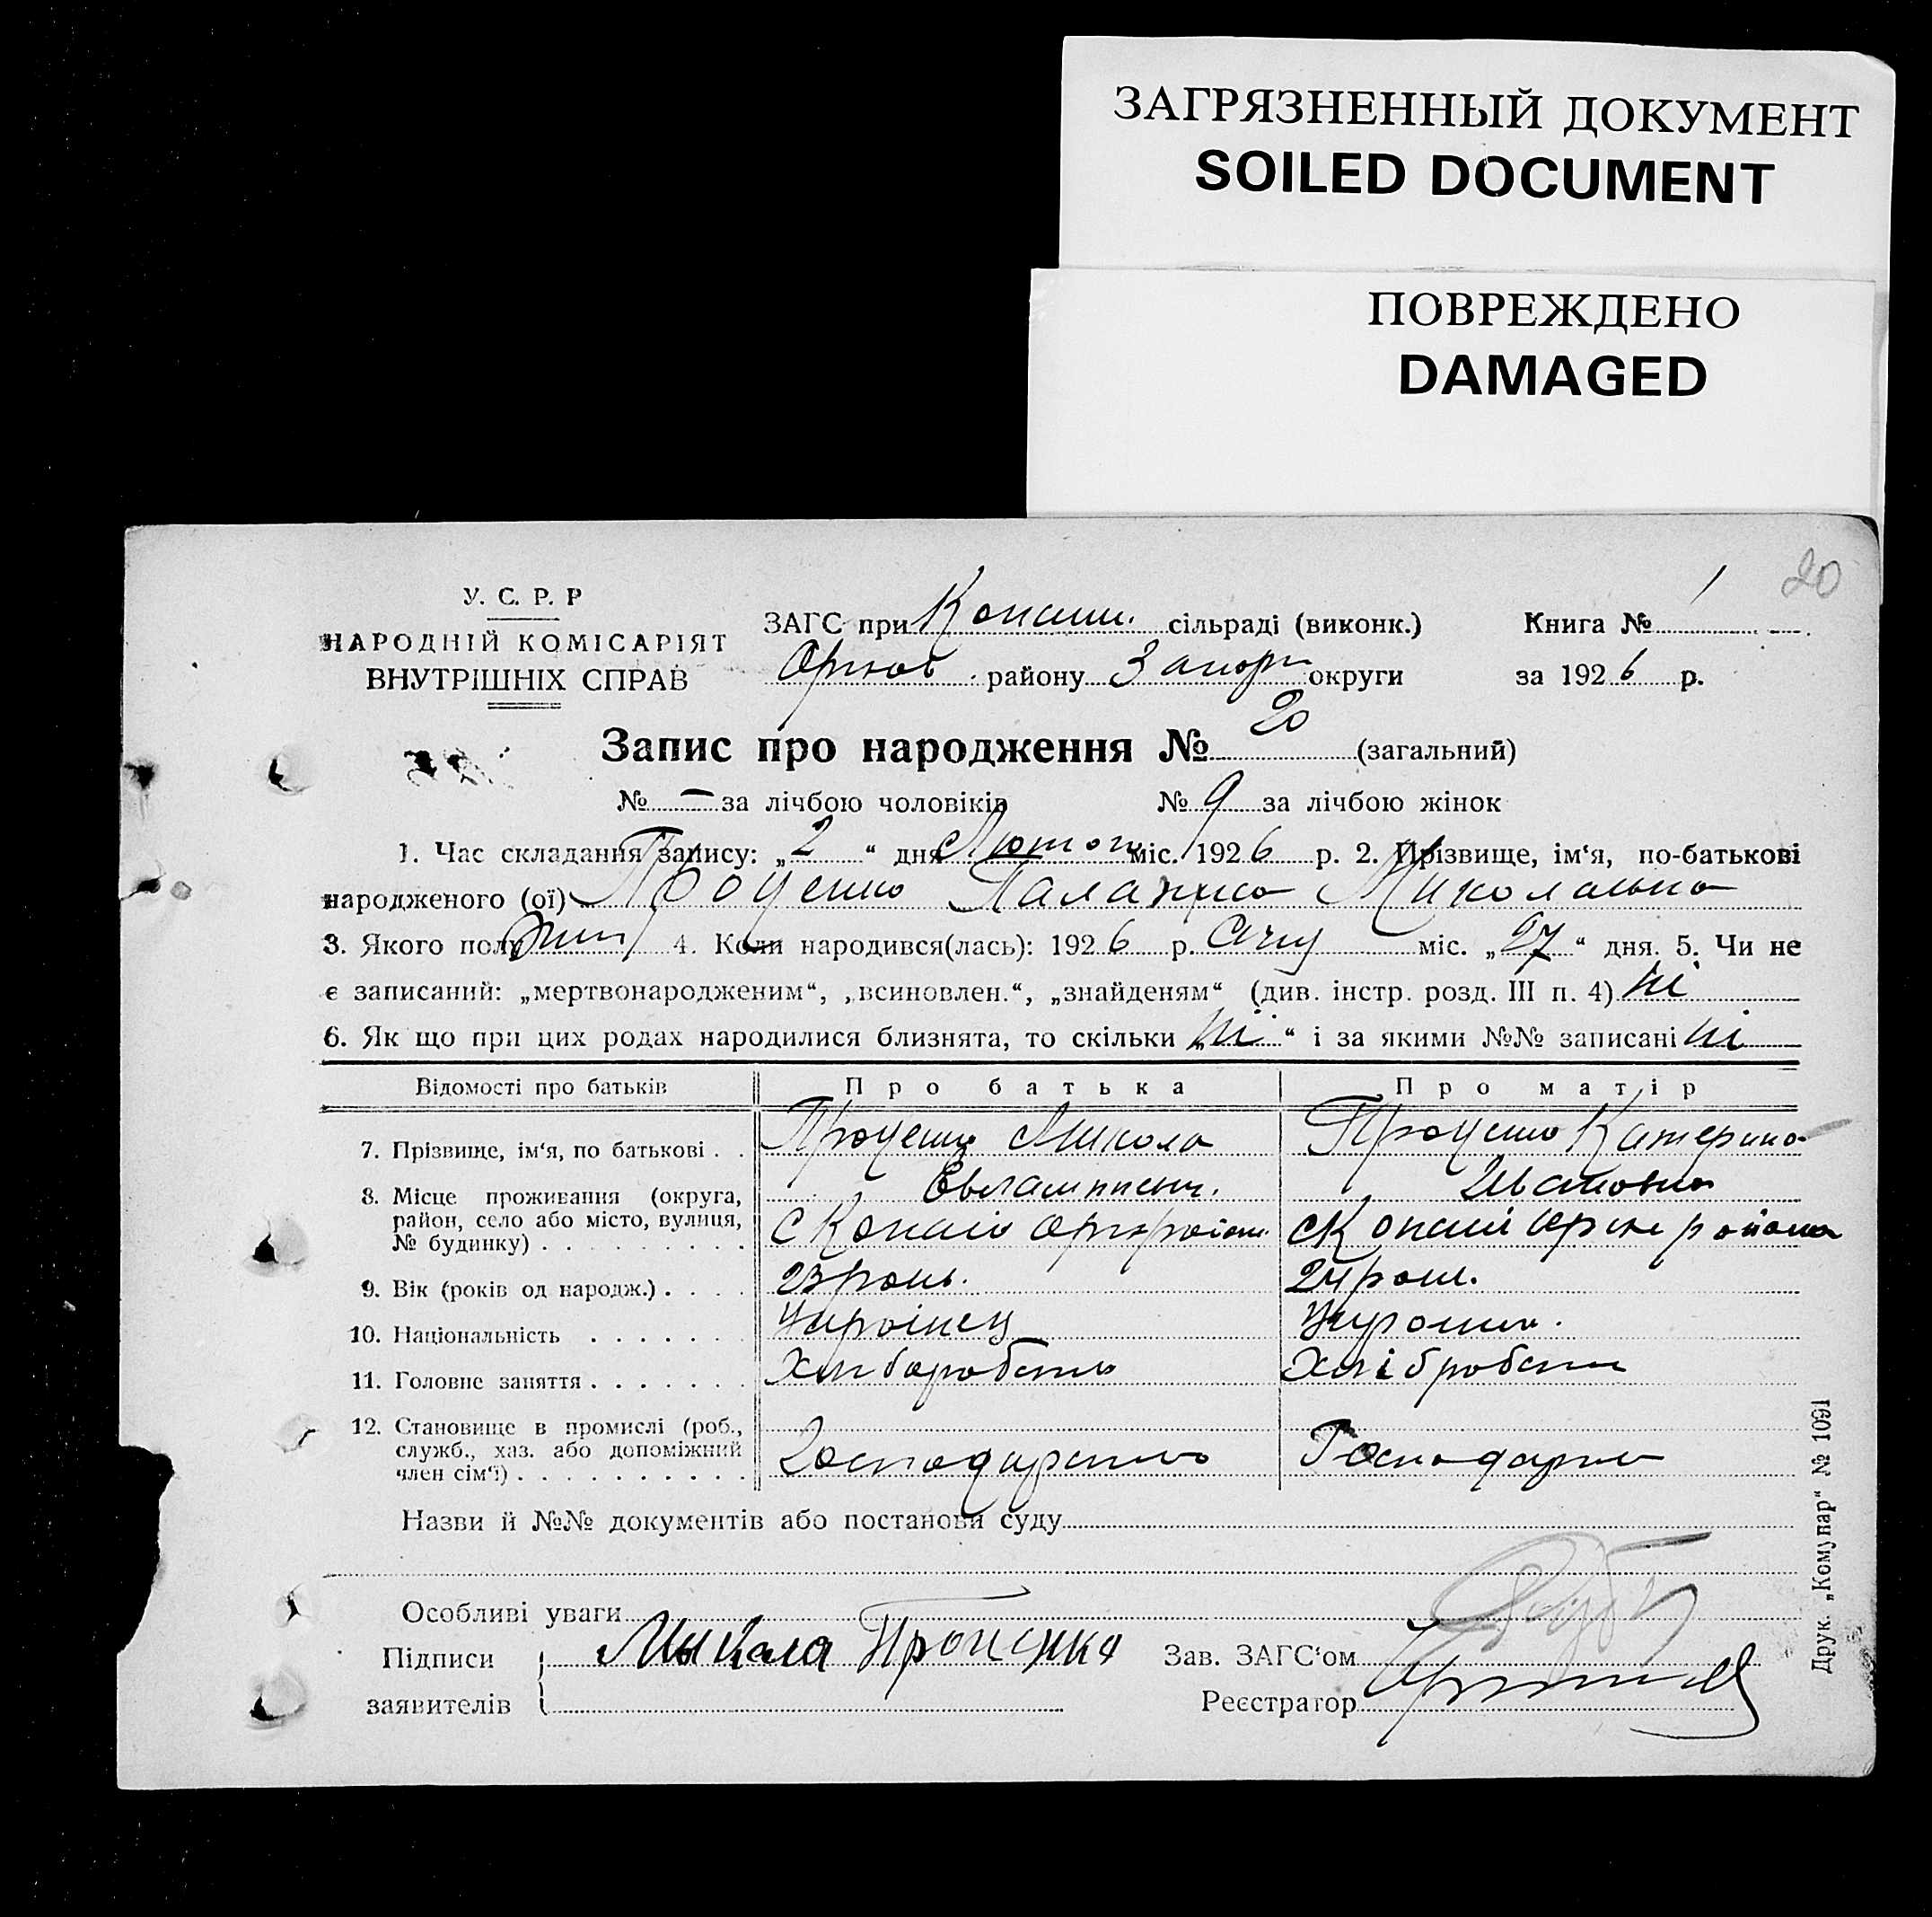 ЗАГРЯЗНЕННЫЙ ДОКУМЕНТ
SOILED DOCUMENT
ПОВРЕЖДЕНО
DAMAGED
20
У. С. Р. Р
НАРОДНІЙ КОМІСАРІЯТ
ВНУТРІШНІХ СПРАВ
ЗАГС при Копани. сільраді (виконк.) Книга № 1
Оріхов. району Запоріз округи за 1926 р.
Запис про народження № 20 (загальний)
№ — за лічбою чоловіків № 9 за лічбою жінок
1. Час складання запису: „2“ дня Лютого міс. 1926 р. 2. Прізвище, ім‘я, по-батькові
народженого (ої) Проценко Палажка Миколаївна
3. Якого полу жін 4. Коли народився(лась): 1926 р. Січня міс. „27“ дня. 5. Чи не
є записаний: „мертвонародженим“, „всиновлен.“, „знайденям“ (див. інстр. розд. III п. 4) ні
6. Як що при цих родах народилися близнята, то скільки „ні“ і за якими №№ записані ні
Відомості про батьків Про батька Про матір
7. Прізвище, ім‘я, по батькові . . Проценко Микола Проценко Катерина
Івановна
8. Місце проживання (округа,
район, село або місто, вулиця,
№ будинку) . . . . . . . . . с Копані с Копані району
9. Вік (років од народж.) . . . . 23 рок. 24 рок.
10. Національність . . . . . . . Українець Українка.
11. Головне заняття . . . . . . . Хліборобство Хліборобство
12. Становище в промислі (роб.,
служб., хаз. або допоміжний
член сім‘ї) . . . . . . . . . . Господарство Господарка
Назви й №№ документів або постанови суду
Особливі уваги
Підписи Мыкола Проценко Зав. ЗАГС‘ом
заявителів Реєстратор
Друк. „Комунар“ № 1091